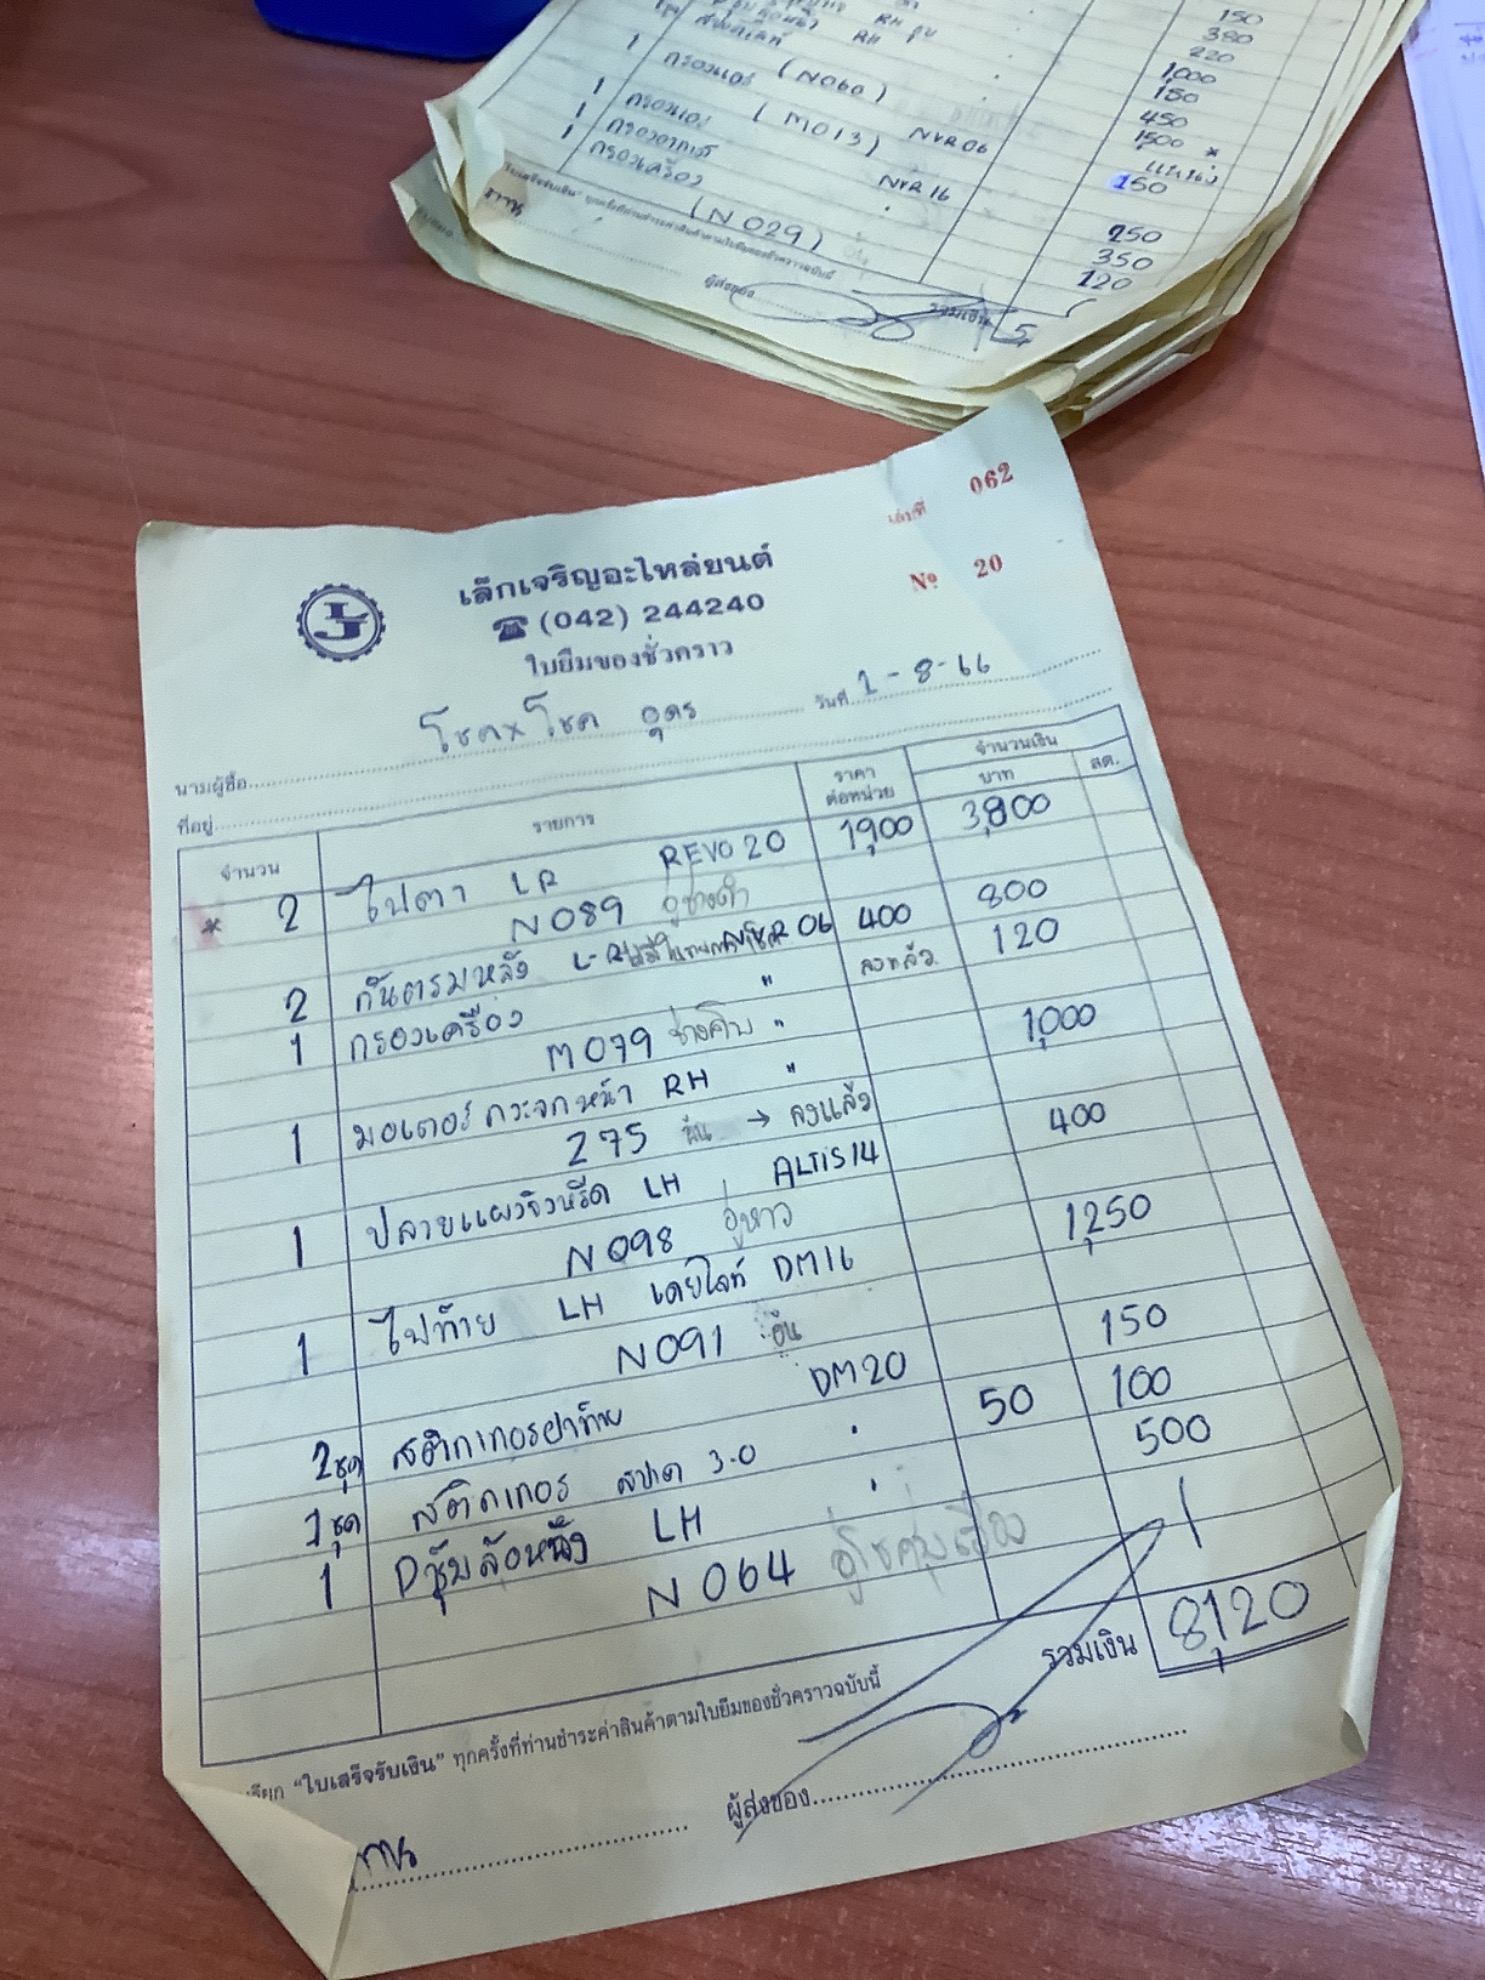 150
RH
380
RH
220
1 (N060) 1,000
150
1 กรองแอร์ (M013) NVR06 450
1 กรองอากาศ 1500 *
1 กรองเครื่อง NVR16 150
(N029) 250
350
120
ผู้ส่งของ รวมเงิน
เล่มที่ 062
№ 20
LJ
เล็กเจริญอะไหล่ยนต์
☎ (042) 244240
ใบยืมของชั่วคราว
นามผู้ซื้อ โชค x โชค อุดร วันที่ 1-8-66
ที่อยู่
จำนวน รายการ ราคาต่อหน่วย จำนวนเงิน
บาท สต.
* 2 ไฟตา LR REVO 20 1,900 3,800
N089 อู่ช่างดำ
2 กันตรมหลัง L-R NVR 06 400 800
1 กรองเครื่อง " ลงแล้ว 120
M079 ช่างคิม "
1 มอเตอร์กระจกหน้า RH " 1,000
275 → ลงแล้ว
1 ปลายแผงจิ้งหรีด LH ALTIS14 400
N098 อู่หาว
1 ไฟท้าย LH เดย์ไลท์ DM16 1,250
N091 อู่น
2ชุด สติกเกอร์ฝาท้าย DM20 150
1ชุด สติกเกอร์ สปาด 3.0 " 50 100
1 Dซุ้มล้อหลัง LH " 500
N064
รวมเงิน 8,120
เรียก "ใบเสร็จรับเงิน" ทุกครั้งที่ท่านชำระค่าสินค้าตามใบยืมของชั่วคราวฉบับนี้
ผู้ส่งของ